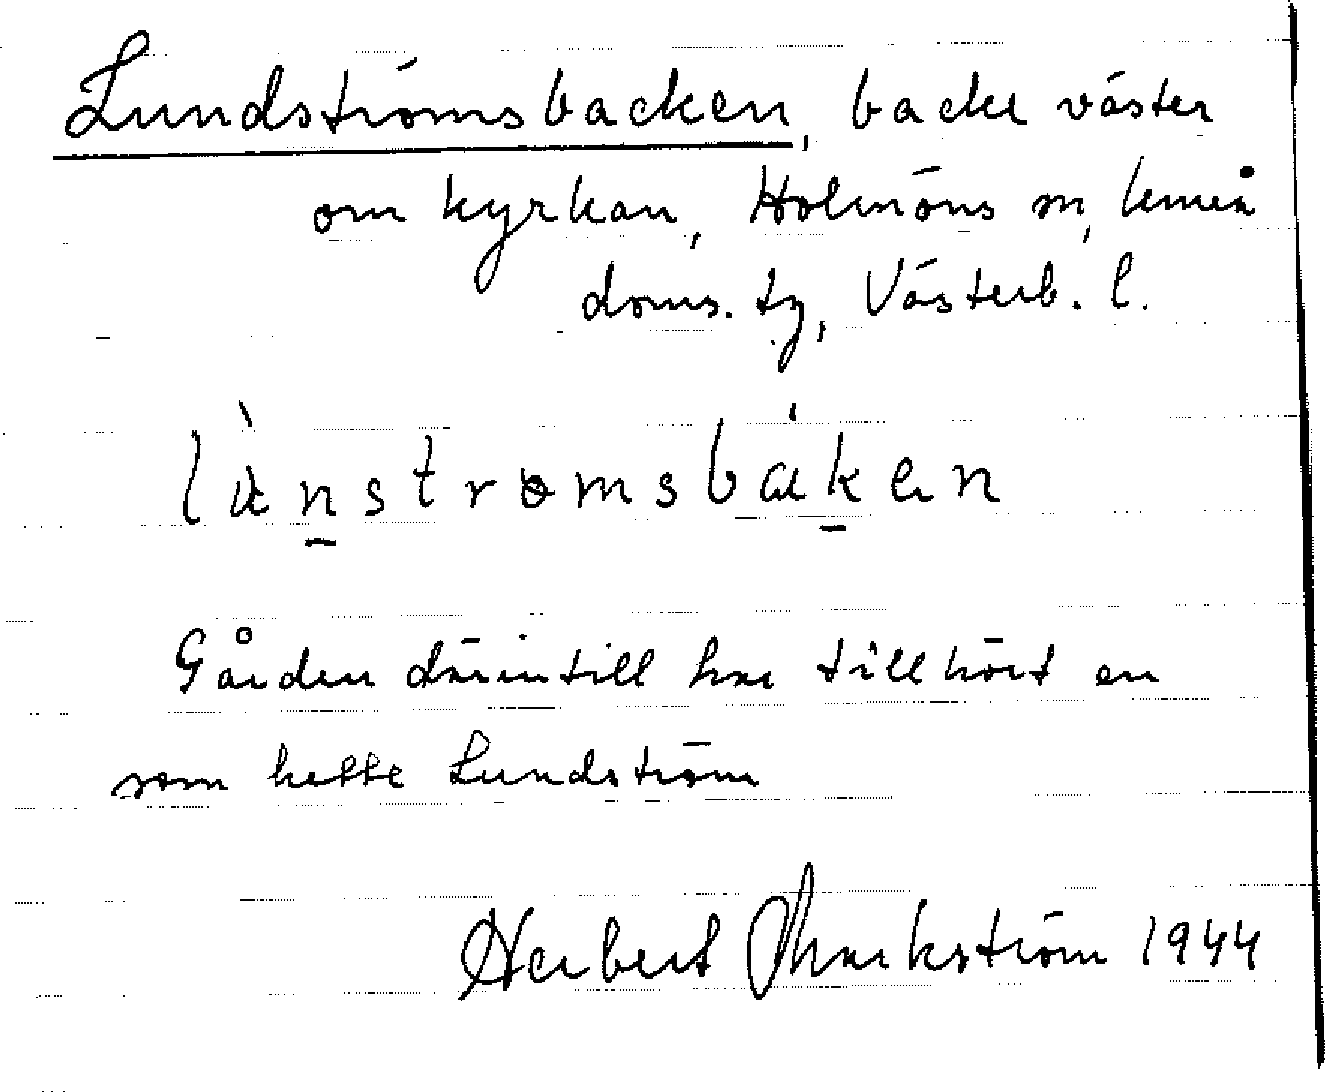 Lundströmsbacken, backe väster
om kyrkan, Holmöns sn, Umeå
doms. tg, Västerb. l.
lùn̲stromsbák̲en
Gården därintill har tillhört en
som hette Lundström
Herbert Markström 1944